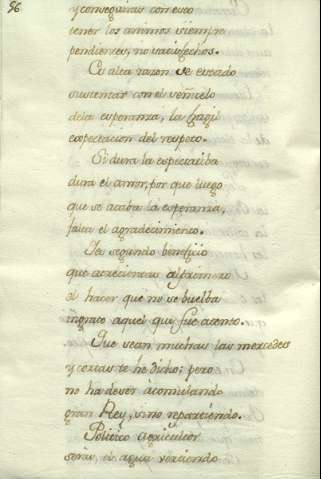 56
y conseguiras con esto
tener los animos siempre
pendientes, no satisfechos.
Es alta razon de estado
sustentar con el señuelo
de la esperanza, la
expectacion del respeto.
Si dura la espectatiba
dura el amor, por que luego
que se acaba la esperanza,
falta el agradecimiento.
Ies segundo benefiçio
que acrecientas al primero
el hacer que no se buelba
ingrato aquel que fue atento.
Que sean muchas las mercedes
y cortas te he dicho; pero
no ha de ser acomulando
gran Rey, sino repartiendo.
Politico agricultor
seras el agua vertiendo